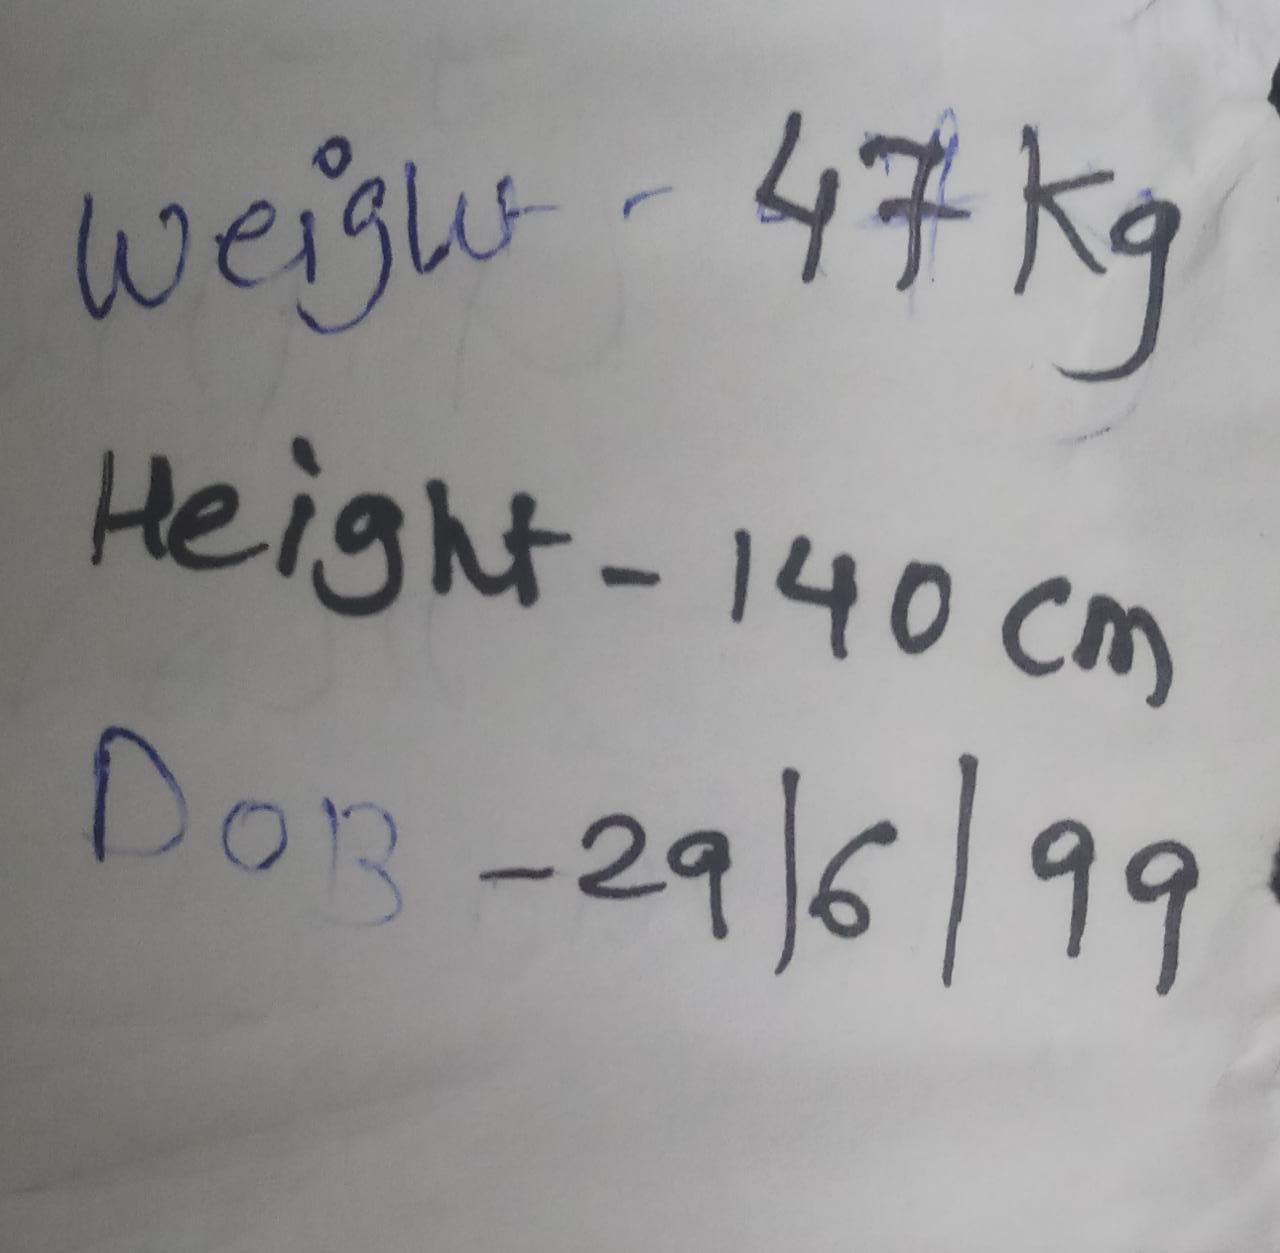 Weight - 47 Kg
Height - 140 cm
DOB - 29/6/99